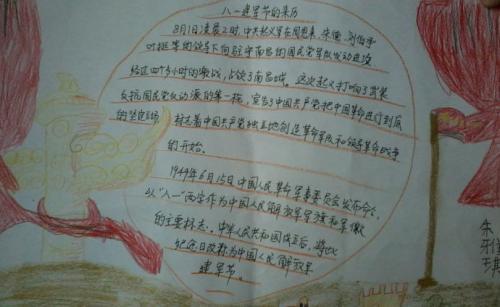 八一建军节的来历
8月1日凌晨2时，中共起义军在周恩来、朱德、刘伯承
叶挺等的领导下向驻守南昌的国民党军队发动进攻
经过四个多小时的激战，占领了南昌城。这次起义打响了武装
反抗国民党反动派的第一枪，宣告了中国共产党把中国革命进行到底
的坚定立场 标志着中国共产党独立地创造革命军队和领导革命战争
的开始。
1949年6月15日中国人民革命军事委员会发布命令，
以"八一"两字作为中国人民解放军军旗和军徽
的主要标志。中华人民共和国成立后，将此
纪念日改称为中国人民解放军
建军节。
朱